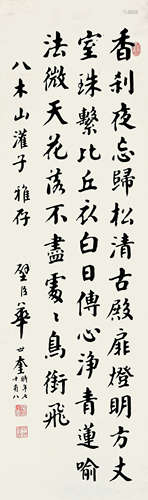 香刹夜忘歸松清古殿扉燈明方丈
室珠繫比丘衣白日傳心淨青蓮喻
法微天花落不盡處〻鳥銜飛
八木山灌子雅存
璧臣華世奎
時年七
十有八